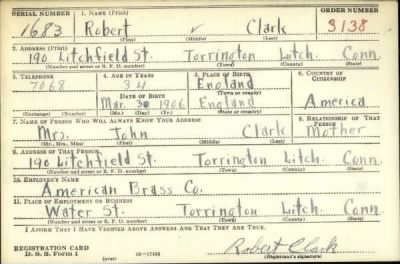 SERIAL NUMBER 1. NAME (Print) ORDER NUMBER
1683 Robert Clark 3138
(First) (Middle) (Last)
2. ADDRESS (Print)
190 Litchfield St. Torrington Litch. Conn.
(Number and street or R. F. D. number) (Town) (County) (State)
3. TELEPHONE 4. AGE IN YEARS 5. PLACE OF BIRTH 6. COUNTRY OF CITIZENSHIP
7068 34 England
(Town or county)
DATE OF BIRTH
Mar. 30 1906 England America
(Exchange) (Number) (Mo.) (Day) (Yr.) (State or country)
7. NAME OF PERSON WHO WILL ALWAYS KNOW YOUR ADDRESS 8. RELATIONSHIP OF THAT PERSON
Mrs. John Clark Mother
(Mr., Mrs., Miss) (First) (Middle) (Last)
9. ADDRESS OF THAT PERSON
190 Litchfield St. Torrington Litch. Conn.
(Number and street or R. F. D. number) (Town) (County) (State)
10. EMPLOYER'S NAME
American Brass Co.
11. PLACE OF EMPLOYMENT OR BUSINESS
Water St. Torrington Litch Conn
(Number and street or R. F. D. number) (Town) (County) (State)
I AFFIRM THAT I HAVE VERIFIED ABOVE ANSWERS AND THAT THEY ARE TRUE.
Robert Clark
REGISTRATION CARD
D. S. S. Form 1 (over) 16—17105 (Registrant's signature)